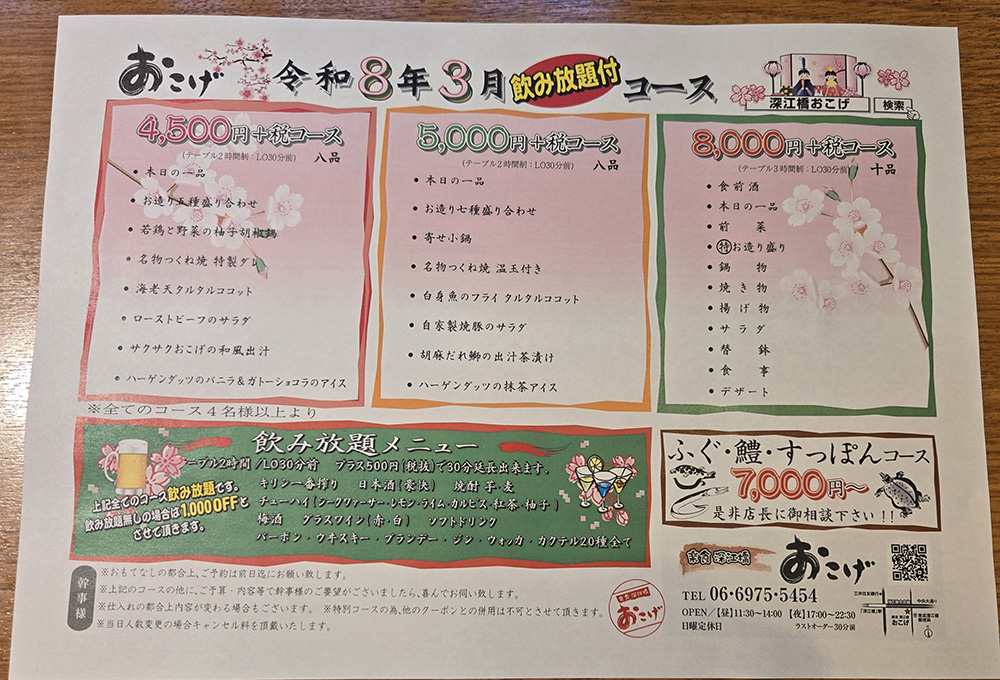 おこげ
令和8年3月飲み放題付コース
深江橋おこげ 検索
4,500円+税コース
(テーブル2時間制:LO30分前) 八品
・本日の一品
・お造り五種盛り合わせ
・若鶏と野菜の柚子胡椒鍋
・名物つくね焼 特製ダレ
・海老天タルタルココット
・ローストビーフのサラダ
・サクサクおこげの和風出汁
・ハーゲンダッツのバニラ&ガトーショコラのアイス
5,000円+税コース
(テーブル2時間制:LO30分前) 八品
・本日の一品
・お造り七種盛り合わせ
・寄せ小鍋
・名物つくね焼 温玉付き
・白身魚のフライ タルタルココット
・自家製焼豚のサラダ
・胡麻だれ鰤の出汁茶漬け
・ハーゲンダッツの抹茶アイス
8,000円+税コース
(テーブル3時間制:LO30分前) 十品
・食前酒
・本日の一品
・前菜
・特お造り盛り
・鍋物
・焼き物
・揚げ物
・サラダ
・替鉢
・食事
・デザート
※全てのコース4名様以上より
飲み放題メニュー
テーブル2時間/LO30分前 プラス500円(税抜)で30分延長出来ます。
キリン一番搾り 日本酒(豪快) 焼酎 芋・麦
チューハイ(シークヮーサー・レモン・ライム・カルピス・紅茶・柚子)
梅酒 グラスワイン(赤・白) ソフトドリンク
バーボン・ウヰスキー・ブランデー・ジン・ウォッカ・カクテル20種全て
上記全てのコース飲み放題です。
飲み放題無しの場合は1,000OFFと
させて頂きます。
ふぐ・鱧・すっぽんコース
7,000円~
是非店長に御相談下さい!!
幹事様
※おもてなしの都合上、ご予約は前日迄にお願い致します。
※上記のコースの他に、ご予算・内容等で幹事様のご要望がございましたら、喜んでお伺い致します。
※仕入れの都合上内容が変わる場合もございます。 ※特別コースの為、他のクーポンとの併用は不可とさせて頂きます。
※当日人数変更の場合キャンセル料を頂戴いたします。
おこげ
楽食 深江橋 おこげ
TEL 06・6975・5454
OPEN/【昼】11:30~14:00 【夜】17:00~22:30
日曜定休日 ラストオーダー30分前
三井住友銀行
中央大通り
「深江橋」駅
おこげ